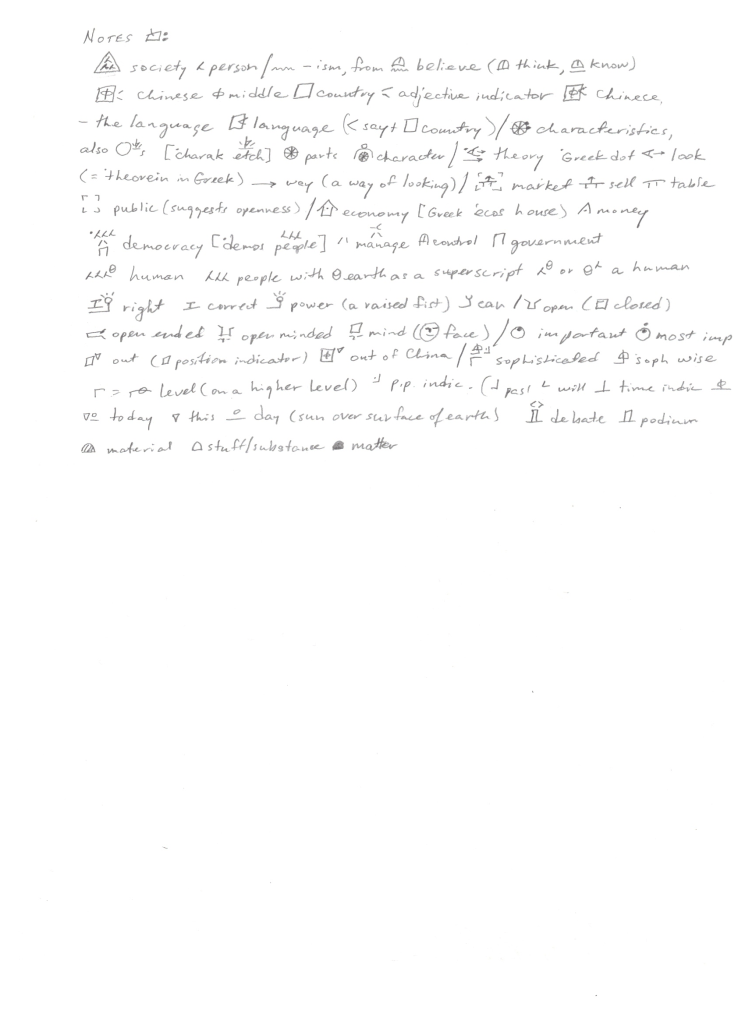 NOTES :
society person / -ism, from believe ( think, know)
chinese middle country < adjective indicator Chinece,
- the language language (< say + country) / characteristics,
also [charak etch] parts character / theory Greek dot look
(= theorein in Greek) → way (a way of looking) / market sell table
public (suggests openness) / economy [Greek ecos house) money
democracy [demos people] manage control government
human people with earth as a superscript or a human
right correct power (a raised fist) can / open ( closed)
open ended open minded mind ( face) / important most imp
out ( position indicator) out of China / sophisticated soph wise
= level (on a higher level) p.p. indic. ( past will time indic
today this day (sun over surface of earth) debate podium
material stuff/substance matter